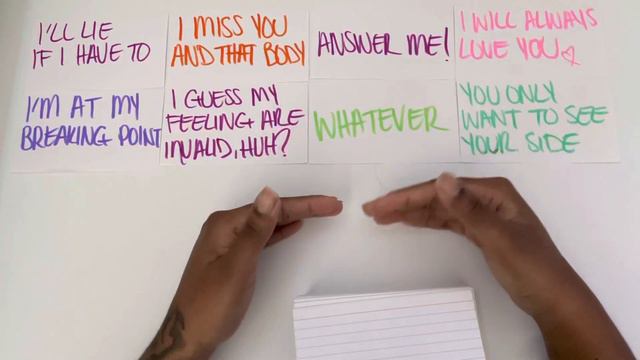 I'LL LIE
IF I HAVE TO
I MISS YOU
AND THAT BODY
ANSWER ME!
I WILL ALWAYS
LOVE YOU
I'M AT MY
BREAKING POINT
I GUESS MY
FEELING ARE
INVALID, HUH?
WHATEVER
YOU ONLY
WANT TO SEE
YOUR SIDE